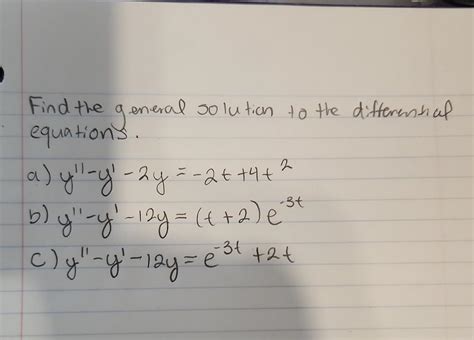 Find the general solution to the differential
equations.
a) y''-y'-2y = -2t+4t²
b) y''-y'-12y = (t+2)e⁻³ᵗ
c) y''-y'-12y = e⁻³ᵗ +2t